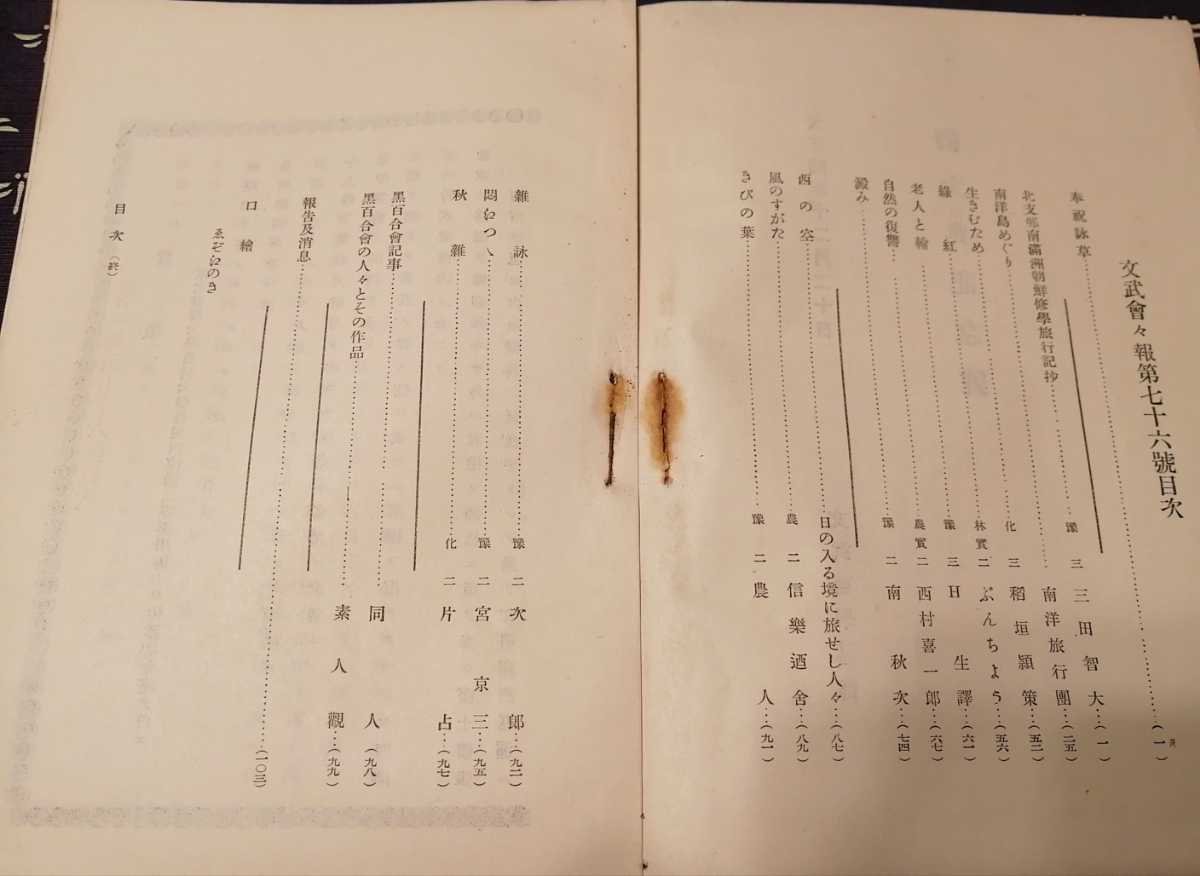 文武會々報第七十六號目次
頁
奉祝詠草……(一)
北支那南滿洲朝鮮修學旅行記抄……豫三 三田智大…(一)
南洋島めぐり……南洋旅行團…(二五)
生きむため……化三 稻垣頴策…(五二)
綠紅……林實二 ぶんちよう…(五六)
老人と鎗……豫三 日生譯…(六一)
自然の復讐……農實二 西村喜一郎…(六七)
澱み……豫二 南秋次…(七四)
西の空……日の入る境に旅せし人々…(八七)
風のすがた……農二 信樂迺舍…(八九)
きびの葉……豫二 農人…(九一)
雜詠……豫二 次郎…(九二)
悶えつゝ……豫二 宮京三…(九五)
秋雜……化二 片占…(九七)
黑百合會記事……同人(九八)
黑百合會の人々とその作品……素人觀…(九九)
報告及消息……(一〇三)
口繪
ゑぞえのき
目次(終)